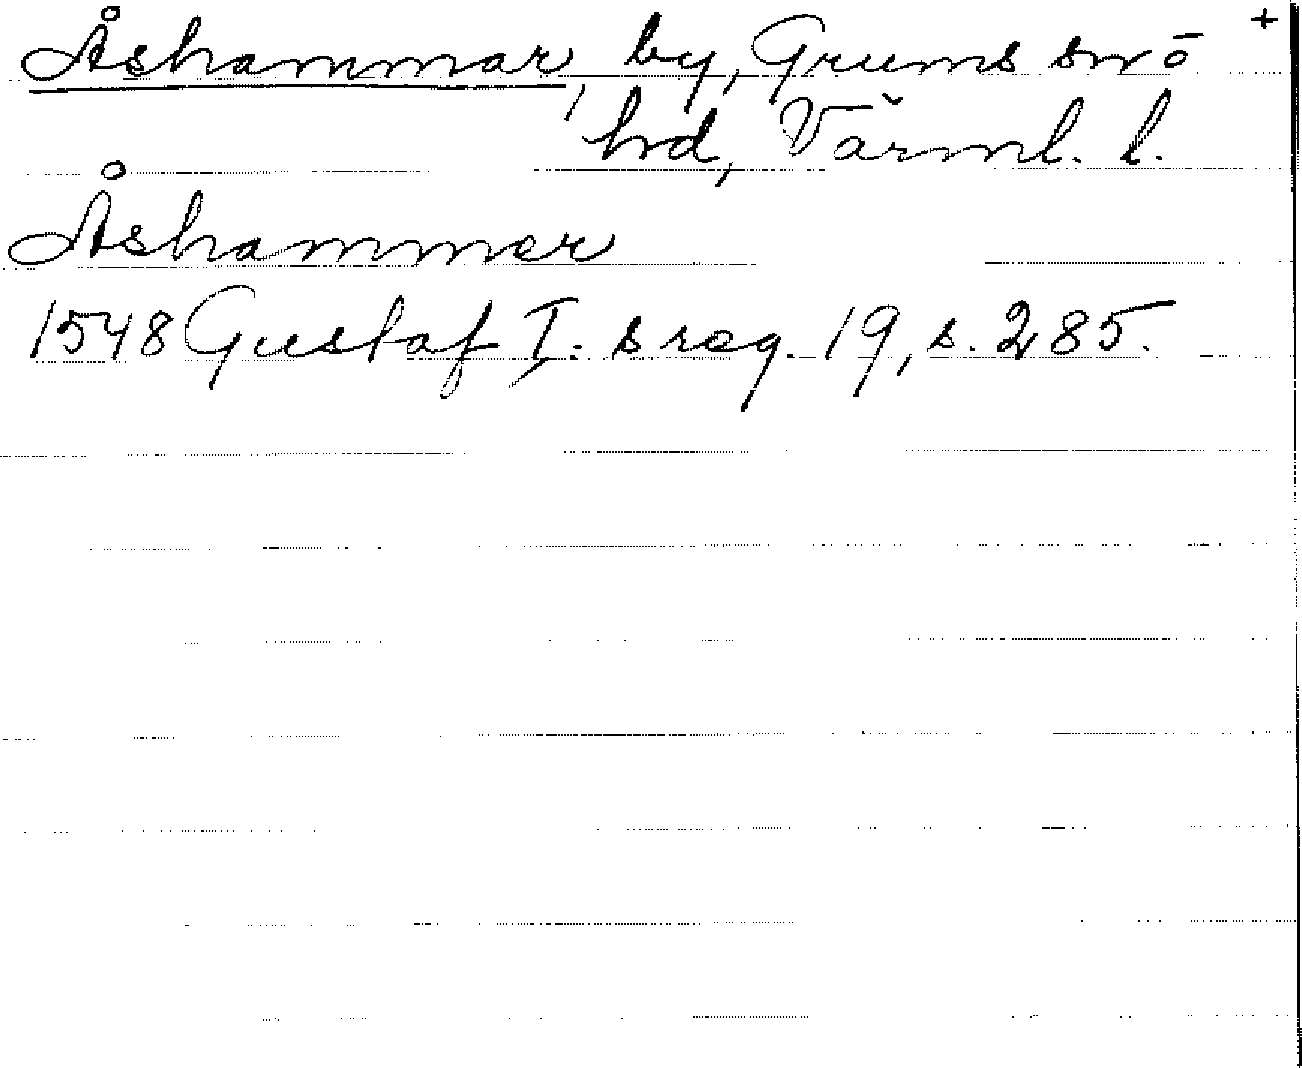 Åshammar, by, Grums sn o +
hd, Värml. l.
Åshammer
1548 Gustaf I. s reg. 19, s. 285.